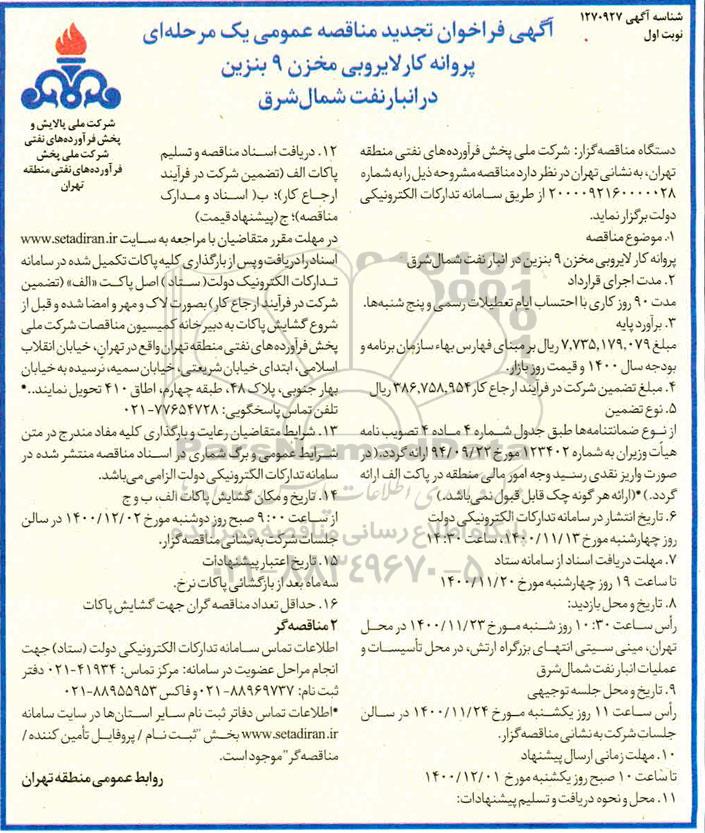 شناسه آگهی ۱۲۷۰۹۲۷
نوبت اول
آگهی فراخوان تجدید مناقصه عمومی یک مرحله‌ای
پروانه کار لایروبی مخزن ۹ بنزین
در انبار نفت شمال شرق
شرکت ملی پالایش و
پخش فرآورده‌های نفتی
شرکت ملی پخش
فرآورده‌های نفتی منطقه
تهران
دستگاه مناقصه‌گزار: شرکت ملی پخش فرآورده‌های نفتی منطقه
تهران، به نشانی تهران در نظر دارد مناقصه مشروحه ذیل را به شماره
۲۰۰۰۰۹۲۱۶۰۰۰۰۰۲۸ از طریق سامانه تدارکات الکترونیکی
دولت برگزار نماید.
۱. موضوع مناقصه
پروانه کار لایروبی مخزن ۹ بنزین در انبار نفت شمال‌شرق
۲. مدت اجرای قرارداد
مدت ۹۰ روز کاری با احتساب ایام تعطیلات رسمی و پنج شنبه‌ها.
۳. برآورد پایه
مبلغ ۷,۷۳۵,۱۷۹,۰۷۹ ریال بر مبنای فهارس بهاء سازمان برنامه و
بودجه سال ۱۴۰۰ و قیمت روز بازار.
۴. مبلغ تضمین شرکت در فرآیند ارجاع کار ۳۸۶,۷۵۸,۹۵۴ ریال
۵. نوع تضمین
از نوع ضمانتنامه‌ها طبق جدول شماره ۴ ماده ۴ تصویب نامه
هیأت وزیران به شماره ۱۲۳۴۰۲ مورخ ۹۴/۰۹/۲۲ ارائه گردد. (در
صورت واریز نقدی رسید وجه امور مالی منطقه در پاکت الف ارائه
گردد.) *(ارائه هر گونه چک قابل قبول نمی‌باشد.)
۶. تاریخ انتشار در سامانه تدارکات الکترونیکی دولت
روز چهارشنبه مورخ ۱۴۰۰/۱۱/۱۳، ساعت ۱۴:۳۰
۷. مهلت دریافت اسناد از سامانه ستاد
تا ساعت ۱۹ روز چهارشنبه مورخ ۱۴۰۰/۱۱/۲۰
۸. تاریخ و محل بازدید:
رأس ساعت ۱۰:۳۰ روز شنبه مورخ ۱۴۰۰/۱۱/۲۳ در محل
تهران، مینی سیتی انتهای بزرگراه ارتش، در محل تأسیسات و
عملیات انبار نفت شمال‌شرق
۹. تاریخ و محل جلسه توجیهی
رأس ساعت ۱۱ روز یکشنبه مورخ ۱۴۰۰/۱۱/۲۴ در سالن
جلسات شرکت به نشانی مناقصه‌گزار.
۱۰. مهلت زمانی ارسال پیشنهاد
تا ساعت ۱۰ صبح روز یکشنبه مورخ ۱۴۰۰/۱۲/۰۱
۱۱. محل و نحوه دریافت و تسلیم پیشنهادات:
۱۲. دریافت اسناد مناقصه و تسلیم
پاکات الف (تضمین شرکت در فرآیند
ارجاع کار)؛ ب( اسناد و مدارک
مناقصه)؛ ج (پیشنهاد قیمت)
در مهلت مقرر متقاضیان با مراجعه به سایت www.setadiran.ir
اسناد را دریافت و پس از بارگذاری کلیه پاکات تکمیل شده در سامانه
تدارکات الکترونیک دولت( ستاد ) اصل پاکت «الف» (تضمین
شرکت در فرآیند ارجاع کار ) بصورت لاک و مهر و امضا شده و قبل از
شروع گشایش پاکات به دبیرخانه کمیسیون مناقصات شرکت ملی
پخش فرآورده‌های نفتی منطقه تهران واقع در تهران، خیابان انقلاب
اسلامی، ابتدای خیابان شریعتی، خیابان سمیه، نرسیده به خیابان
بهار جنوبی، پلاک ۴۸، طبقه چهارم، اطاق ۴۱۰ تحویل نمایند..*
تلفن تماس پاسخگویی: ۷۷۶۵۴۷۲۸-۰۲۱
۱۳. شرایط متقاضیان رعایت و بارگذاری کلیه مفاد مندرج در متن
شرایط عمومی و برگ شماری در اسناد مناقصه منتشر شده در
سامانه تدارکات الکترونیکی دولت الزامی می‌باشد.
۱۴. تاریخ و مکان گشایش پاکات الف، ب و ج
از ساعت ۹:۰۰ صبح روز دوشنبه مورخ ۱۴۰۰/۱۲/۰۲ در سالن
جلسات شرکت به نشانی مناقصه‌گزار.
۱۵. تاریخ اعتبار پیشنهادات
سه ماه بعد از بازگشائی پاکات نرخ.
۱۶. حداقل تعداد مناقصه گران جهت گشایش پاکات
۲ مناقصه‌گر
اطلاعات تماس سامانه تدارکات الکترونیکی دولت (ستاد) جهت
انجام مراحل عضویت در سامانه: مرکز تماس: ۴۱۹۳۴-۰۲۱ دفتر
ثبت نام: ۸۸۹۶۹۷۳۷-۰۲۱ و فاکس ۸۸۹۵۵۹۵۳-۰۲۱
*اطلاعات تماس دفاتر ثبت نام سایر استان‌ها در سایت سامانه
www.setadiran.ir بخش "ثبت نام / پروفایل تأمین کننده /
مناقصه‌گر" موجود است.
روابط عمومی منطقه تهران
ParsNamadData
پایگاه اطلاع رسانی مناقصه مزایده
۰۲۱-۸۸۳۴۹۶۷۰-۵